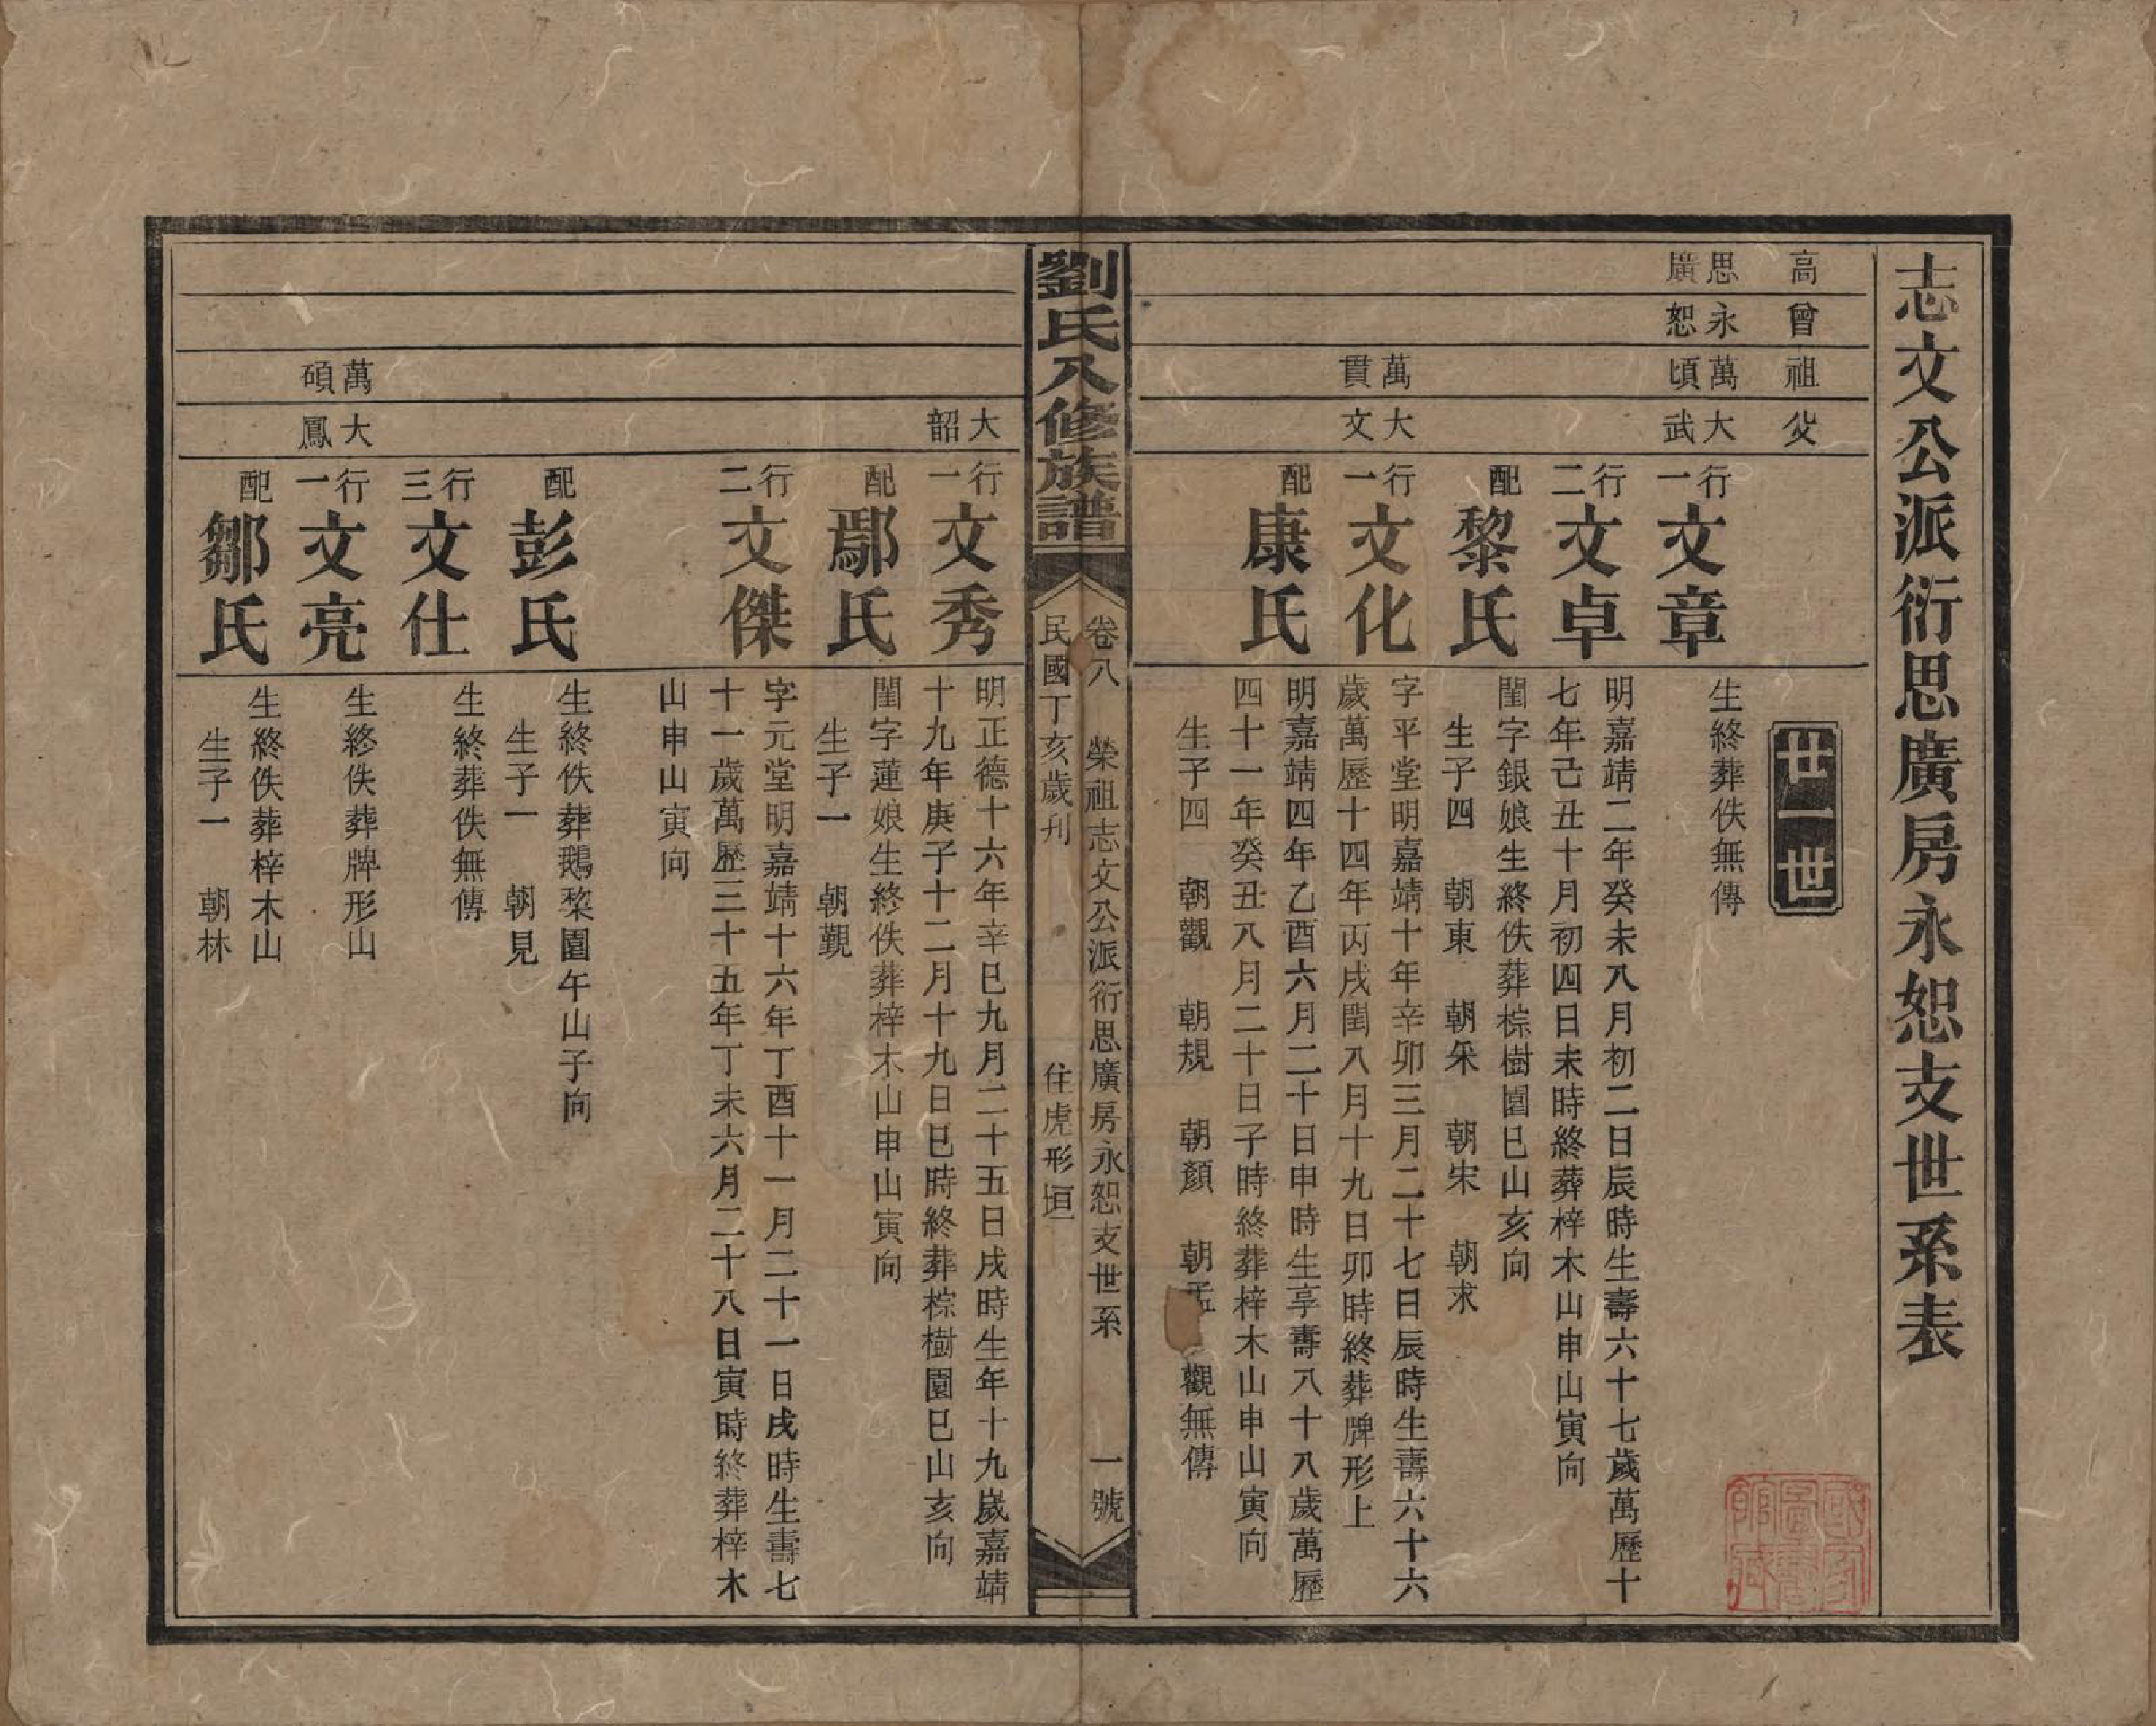 志文公派衍思廣房永恕支世系表
高
曾
祖
父
世一世
思廣
永恕
萬頃
大武
行一
文章
生終葬佚無傳
行二
文卓
明嘉靖二年癸未八月初二日辰時生壽六十七歲萬歷十
七年己丑十月初四日未時終葬梓木山申山寅向
配
黎氏
閨字銀娘生終佚葬棕樹園巳山亥向
生子四 朝東 朝杗 朝宋 朝求
萬貫
大文
行一
文化
字平堂明嘉靖十年辛卯三月二十七日辰時生壽六十六
歲萬歷十四年丙戌閏八月十九日卯時終葬牌形上
配
康氏
明嘉靖四年乙酉六月二十日申時生享壽八十八歲萬歷
四十一年癸丑八月二十日子時終葬梓木山申山寅向
生子四 朝觀 朝規 朝顏 朝孟 觀無傳
劉氏八修族譜
卷八 榮祖志文公派衍思廣房永恕支世系 一號
民國丁亥歲刊 住虎形垣
大韶
行一
文秀
明正德十六年辛巳九月二十五日戌時生年十九歲嘉靖
十九年庚子十二月十九日巳時終葬棕樹園巳山亥向
配
鄢氏
閨字蓮娘生終佚葬梓木山申山寅向
生子一 朝覲
行二
文傑
字元堂明嘉靖十六年丁酉十一月二十一日戌時生壽七
十一歲萬歷三十五年丁未六月二十八日寅時終葬梓木
山申山寅向
配
彭氏
生終佚葬鵝棃園午山子向
生子一 朝見
行三
文仕
生終葬佚無傳
萬碩
大鳳
行一
文亮
生終佚葬牌形山
配
鄒氏
生終佚葬梓木山
生子一 朝林